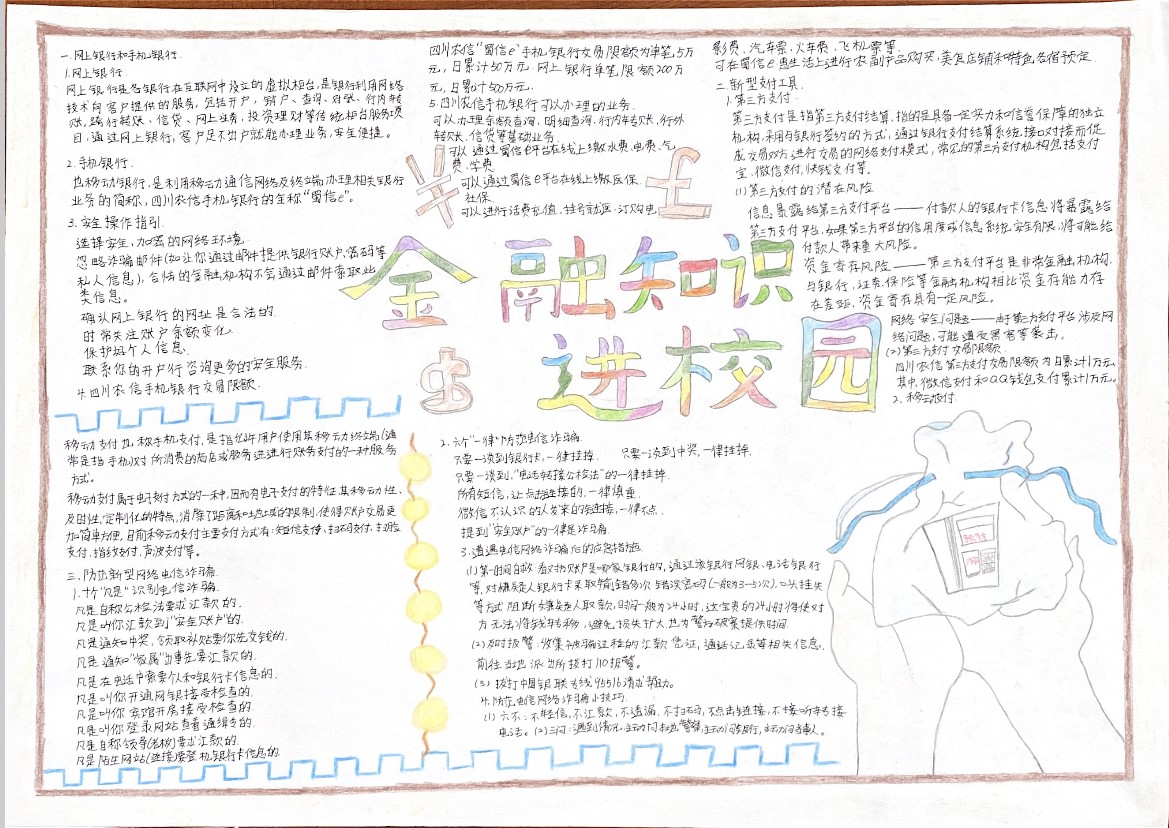 一.网上银行和手机银行.
1.网上银行.
网上银行是各银行在互联网中设立的虚拟柜台,是银行利用网络
技术向客户提供的服务,包括开户,销户、查询、对账、行内转
账,跨行转账、信贷、网上证券,投资理财等传统柜台服务项
目,通过网上银行,客户足不出户就能办理业务,安全便捷.
2.手机银行.
也称移动银行,是利用移动通信网络及终端办理相关银行
业务的简称,四川农信手机银行的全称"蜀信e".
3.安全操作指引.
选择安全,加密的网络环境.
忽略诈骗邮件(如让你通过邮件提供银行账户,密码等
私人信息),合法的金融机构不会通过邮件索取此
类信息.
确认网上银行的网址是合法的.
时常关注账户余额变化.
保护好个人信息.
联系你的开户行咨询更多的安全服务.
4.四川农信手机银行交易限额.
四川农信"蜀信e"手机银行交易限额为单笔5万
元,日累计50万元.网上银行单笔限额200万
元,日累计500万元.
5.四川农信手机银行可以办理的业务.
可以办理余额查询,明细查询,行内转账,行外
转账、信贷等基础业务.
可以通过蜀信e平台在线上缴水费、电费、气
费、学费.
可以通过蜀信e平台在线上缴医保、
社保.
可以进行话费充值、挂号就医、订购电
影费、汽车票、火车费、飞机票等.
可在蜀信e惠生活上进行农副产品购买、美食店铺和特色名宿预定.
二.新型支付工具.
1.第三方支付.
第三方支付是指第三方支付结算,指的是具备一定实力和信誉保障的独立
机构,采用与银行签约的方式,通过银行支付结算系统接口对接而促
成交易双方进行交易的网络支付模式,常见的第三方支付机构包括支付
宝、微信支付,快钱支付等.
(1)第三方支付的潜在风险
信息暴露给第三方支付平台——付款人的银行卡信息将暴露给
第三方支付平台,如果第三方平台的信用度或信息系统安全有限,将可能给
付款人带来重大风险.
资金寄存风险——第三方支付平台是非常金融机构.
与银行,证券、保险等金融机构相比资金存能力存
在差距,资金寄存具有一定风险.
网络安全问题——由于第三方支付平台涉及网
络问题,可能遭受黑客等袭击.
(2)第三方支付交易限额.
四川农信第三方支付交易限额为日累计1万元,
其中,微信支付和QQ钱包支付累计1万元.
2.移动支付.
¥
£
金融知识
进校园
$
移动支付也称手机支付,是指允许用户使用其移动终端(通
常是指手机)对所消费的商店或服务进进行账务支付的一种服务
方式.
移动支付属于电子支付方式的一种,因而有电子支付的特征,其移动性、
及时性,定制化的特点,消除了距离和地域的限制,使得账户交易更
加简单方便,目前移动支付主要支付方式有:短信支付、扫码支付、扫脸
支付,指纹支付,声波支付等.
三.防范新型网络电信诈骗.
1.十个"凡是"识别电信诈骗.
凡是自称公检法要求汇款的.
凡是叫你汇款到"安全账户"的.
凡是通知中奖,领取补贴要你先交钱的.
凡是通知"家属"出事先要汇款的.
凡是在电话中索要个人和银行卡信息的.
凡是叫你开通网银接受检查的.
凡是叫你宾馆开房接受检查的.
凡是叫你登录网站查看通缉令的.
凡是自称领导(老板)要求汇款的.
凡是陌生网站(连接)要登机银行卡信息的.
2.六个"一律"防范电信诈骗.
只要一谈到银行卡,一律挂掉. 只要一谈到中奖,一律挂掉.
只要一谈到,"电话转接公检法"的一律挂掉.
所有短信,让点击链接的,一律慎重.
微信不认识的人发来的链接,一律不点.
提到"安全账户"的一律是诈骗.
3.遭遇电信网络诈骗后的应急措施.
(1)第一时间自救:看对方账户是哪家银行的,通过该银行网银、电话银行
等,对嫌疑人银行卡采取输错多次错误密码(一般为3-5次),口头挂失
等方式阻断嫌疑人取款,时间一般为24小时,这宝贵的24小时将使对
方无法将钱转移,避免损失扩大,也为警方破案提供时间.
(2)及时报警:收集被骗过程的汇款凭证,通话记录等相关信息.
前往当地派出所拨打110报警.
(3)拨打中国银联专线95516请求帮助.
4.防范电信网络诈骗小技巧.
(1)六不:不轻信,不汇款,不透漏,不扫码,不点击链接,不接听转接
电话.(2)三问:遇到情况,主动问本地警察,主动问银行,主动问当事人.